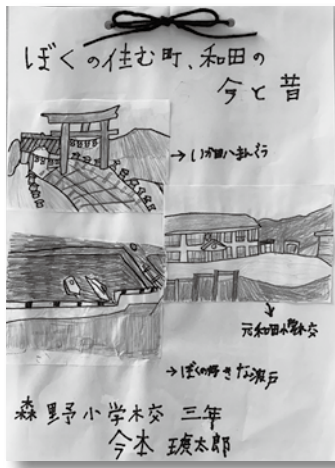 ぼくの住む町、和田の
今と昔
元和田小学校
→ぼくの好きな瀬戸
森野小学校 三年
今本 琥太郎